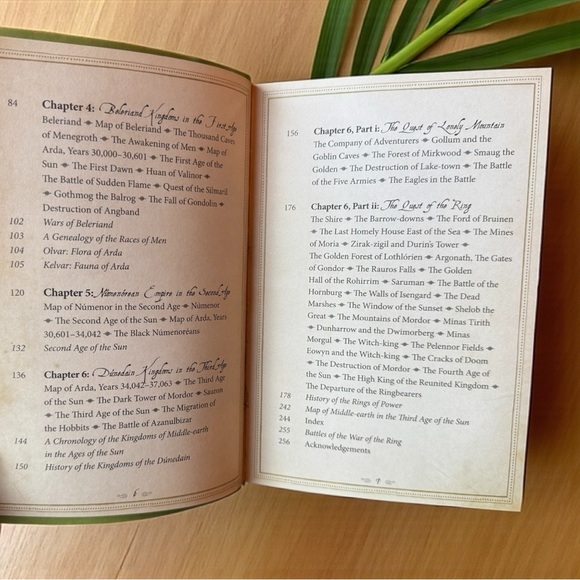 84 Chapter 4: Beleriand Kingdoms in the First Age
Beleriand ◆ Map of Beleriand ◆ The Thousand Caves
of Menegroth ◆ The Awakening of Men ◆ Map of
Arda, Years 30,000–30,601 ◆ The First Age of the
Sun ◆ The First Dawn ◆ Huan of Valinor ◆
The Battle of Sudden Flame ◆ Quest of the Silmaril
◆ Gothmog the Balrog ◆ The Fall of Gondolin ◆
Destruction of Angband
102 Wars of Beleriand
103 A Genealogy of the Races of Men
104 Olvar: Flora of Arda
105 Kelvar: Fauna of Arda
120 Chapter 5: Númenórean Empire in the Second Age
Map of Númenor in the Second Age ◆ Númenor
◆ The Second Age of the Sun ◆ Map of Arda, Years
30,601–34,042 ◆ The Black Númenóreans
132 Second Age of the Sun
136 Chapter 6: Dúnedain Kingdoms in the Third Age
Map of Arda, Years 34,042–37,063 ◆ The Third Age
of the Sun ◆ The Dark Tower of Mordor ◆ Sauron
◆ The Third Age of the Sun ◆ The Migration of
the Hobbits ◆ The Battle of Azanulbizar
144 A Chronology of the Kingdoms of Middle-earth
in the Ages of the Sun
150 History of the Kingdoms of the Dúnedain
6
156 Chapter 6, Part i: The Quest of Lonely Mountain
The Company of Adventurers ◆ Gollum and the
Goblin Caves ◆ The Forest of Mirkwood ◆ Smaug the
Golden ◆ The Destruction of Lake-town ◆ The Battle
of the Five Armies ◆ The Eagles in the Battle
176 Chapter 6, Part ii: The Quest of the Ring
The Shire ◆ The Barrow-downs ◆ The Ford of Bruinen
◆ The Last Homely House East of the Sea ◆ The Mines
of Moria ◆ Zirak-zigil and Durin's Tower ◆
The Golden Forest of Lothlórien ◆ Argonath, The Gates
of Gondor ◆ The Rauros Falls ◆ The Golden
Hall of the Rohirrim ◆ Saruman ◆ The Battle of the
Hornburg ◆ The Walls of Isengard ◆ The Dead
Marshes ◆ The Window of the Sunset ◆ Shelob the
Great ◆ The Mountains of Mordor ◆ Minas Tirith
◆ Dunharrow and the Dwimorberg ◆ Minas
Morgul ◆ The Witch-king ◆ The Pelennor Fields ◆
Eowyn and the Witch-king ◆ The Cracks of Doom
◆ The Destruction of Mordor ◆ The Fourth Age of
the Sun ◆ The High King of the Reunited Kingdom ◆
The Departure of the Ringbearers
178 History of the Rings of Power
242 Map of Middle-earth in the Third Age of the Sun
244 Index
255 Battles of the War of the Ring
256 Acknowledgements
7